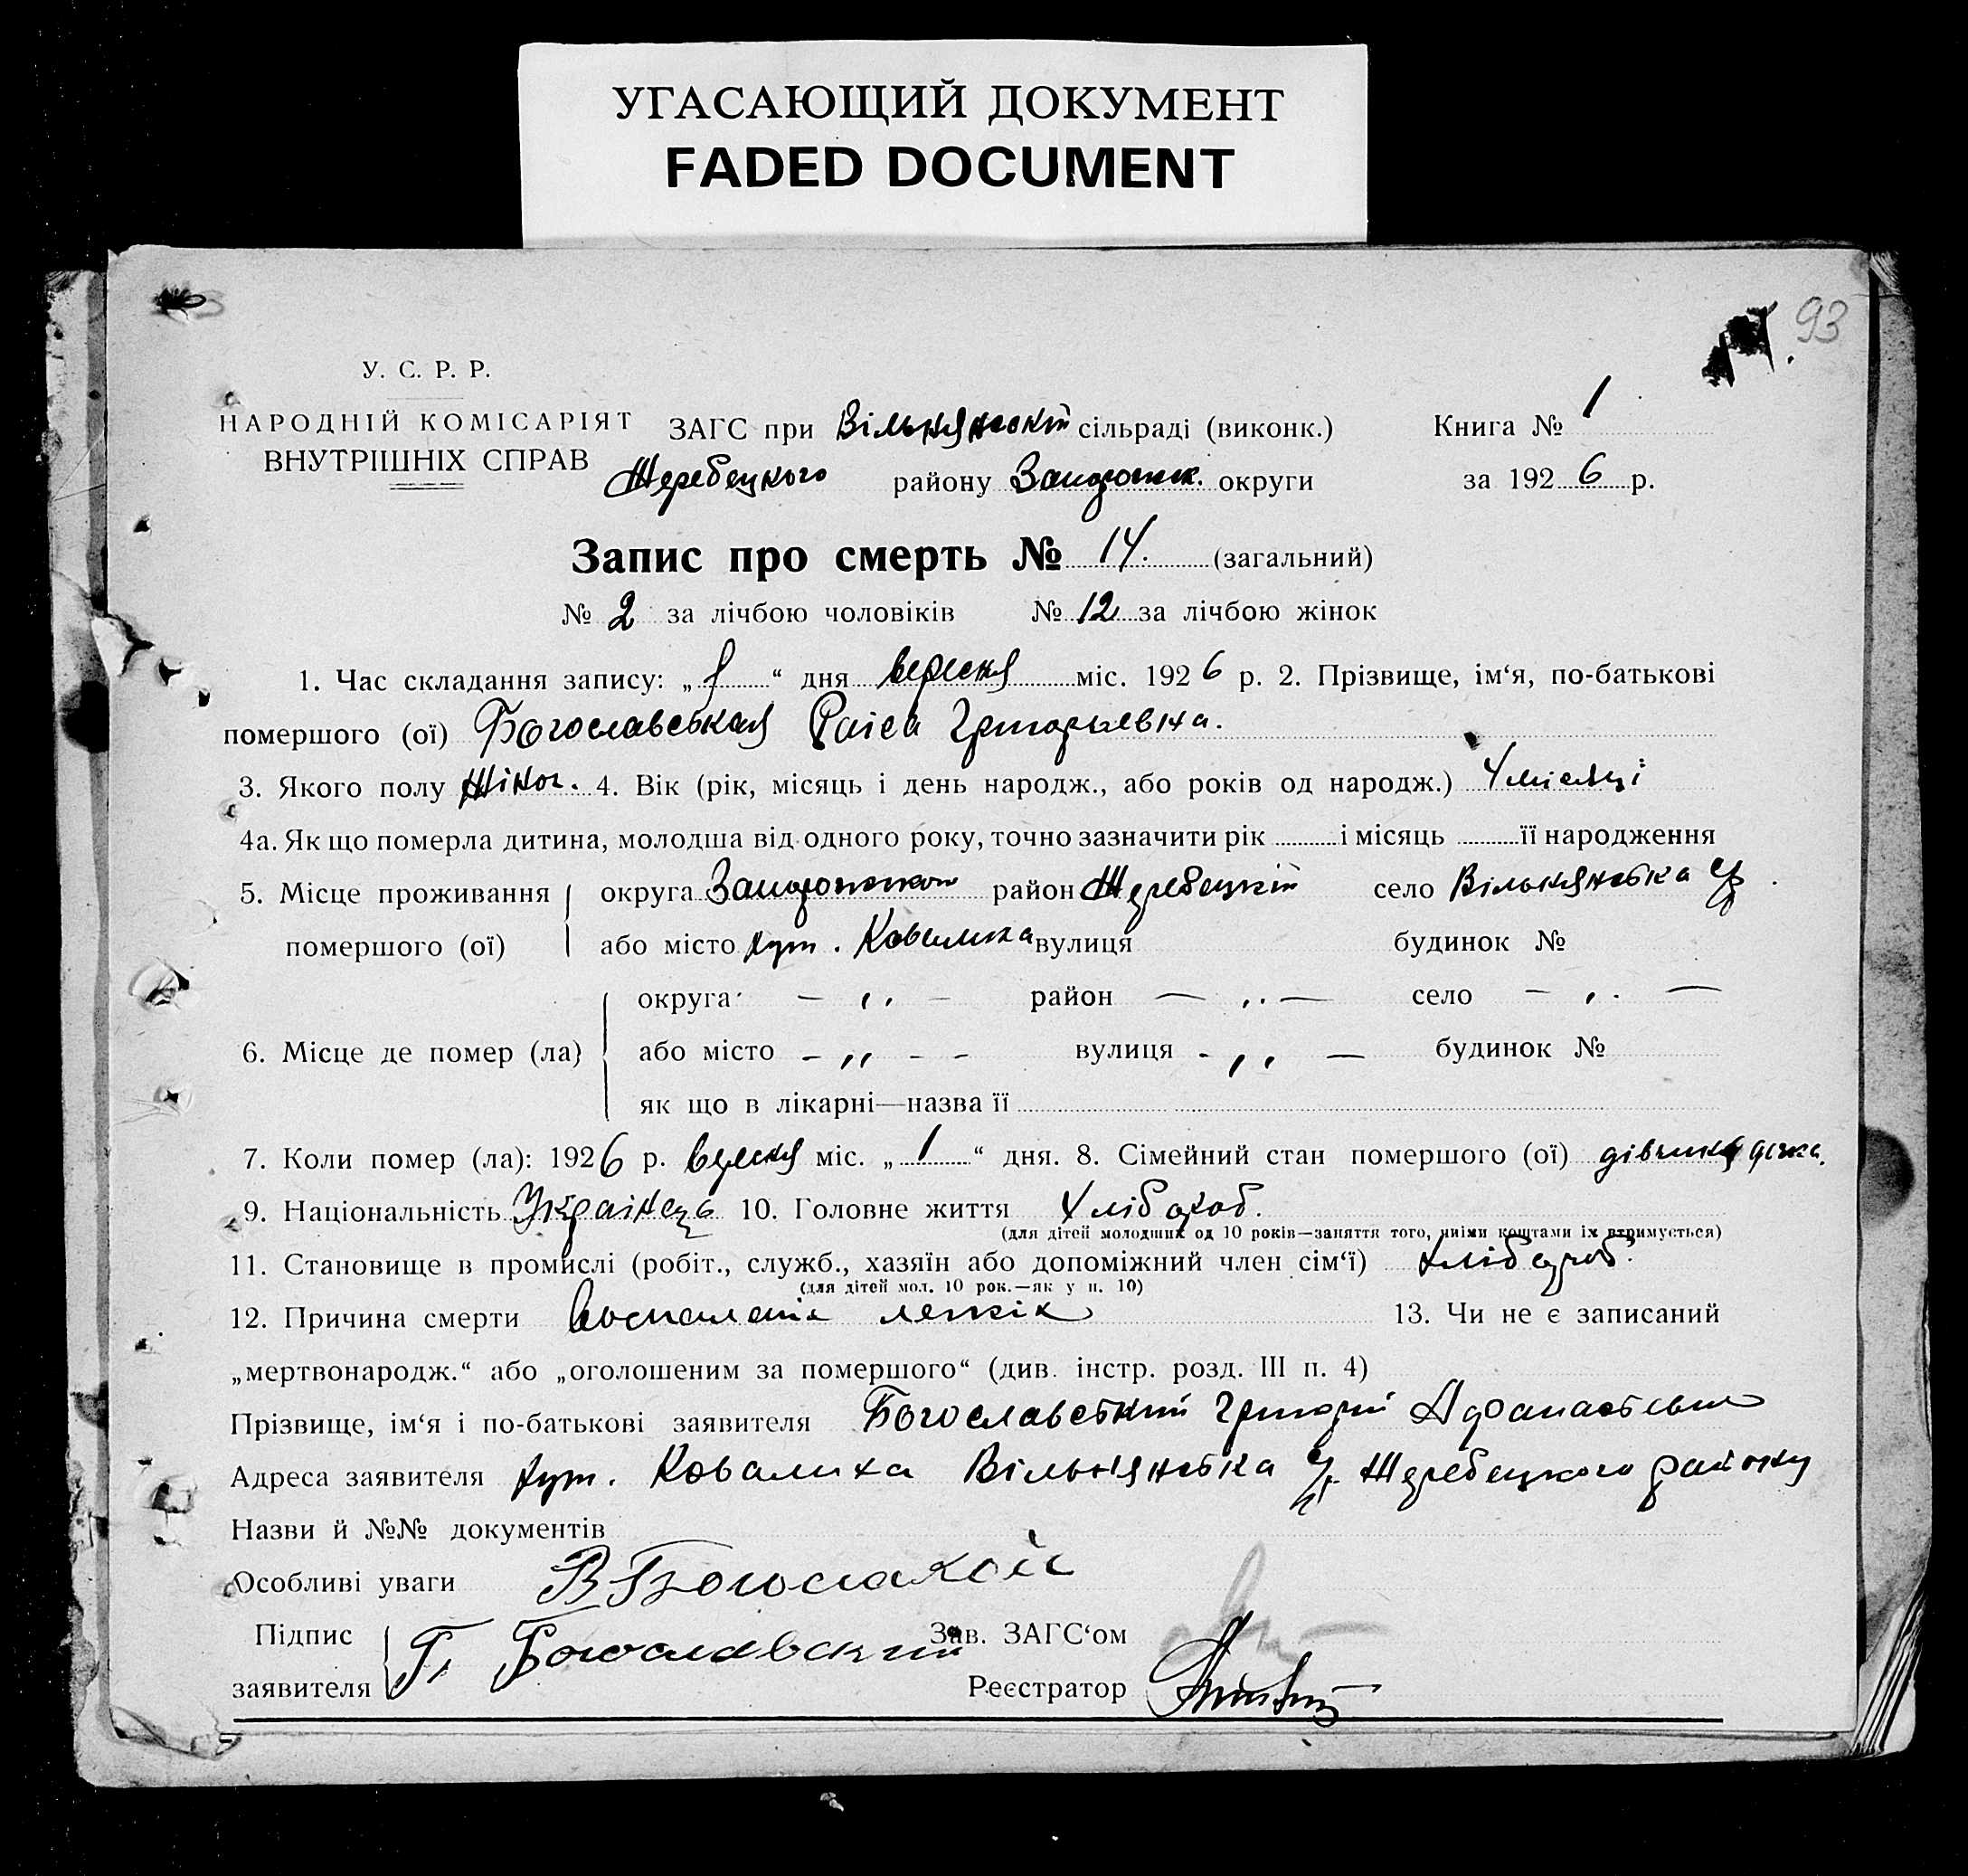 УГАСАЮЩИЙ ДОКУМЕНТ
FADED DOCUMENT
93
У. С. Р. Р.
НАРОДНІЙ КОМІСАРІЯТ
ВНУТРІШНІХ СПРАВ
ЗАГС при Вільнянській сільраді (виконк.) Книга № 1
Жеребецкого району Запорожж. округи за 1926 р.
Запис про смерть № 14. (загальний)
№ 2 за лічбою чоловіків № 12 за лічбою жінок
1. Час складання запису: „ “ дня вересня міс. 1926 р. 2. Прізвище, ім‘я, по-батькові
помершого (ої) Богославськая Раіса Григорьевна.
3. Якого полу жіноч. 4. Вік (рік, місяць і день народж., або років од народж.) 4 місяці
4а. Як що померла дитина, молодша від одного року, точно зазначити рік і місяць її народження
5. Місце проживання округа район Жеребецкій село Вільнянська
помершого (ої) або місто хут. Ковалиха вулиця будинок №
округа — „ — район — „ — село — „ —
6. Місце де помер (ла) або місто - „ - - вулиця - „ — будинок №
як що в лікарні—назва її
7. Коли помер (ла): 1926 р. вересня міс. „ 1 “ дня. 8. Сімейний стан помершого (ої)
9. Національність Українець 10. Головне життя Хлібороб.
(для дітей молодших од 10 років—заняття того, чиїми коштами їх втримується)
11. Становище в промислі (робіт., служб., хазяїн або допоміжний член сім‘ї) хлібороб.
(для дітей мол. 10 рок.—як у п. 10)
12. Причина смерти воспаленія легкіх 13. Чи не є записаний
„мертвонародж.“ або „оголошеним за помершого“ (див. інстр. розд. III п. 4)
Прізвище, ім‘я і по-батькові заявителя Богославський Григорій
Адреса заявителя хут. Ковалиха Вільнянська Жеребецкого району
Назви й №№ документів
Особливі уваги
Підпис
заявителя Г. Богославский
Зав. ЗАГС‘ом
Реєстратор